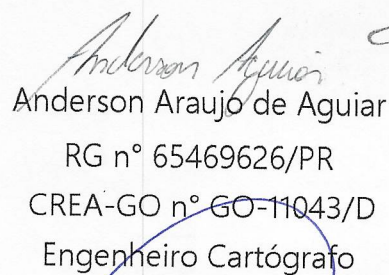 Anderson Aguiar
Anderson Araujo de Aguiar
RG n° 65469626/PR
CREA-GO n° GO-11043/D
Engenheiro Cartógrafo